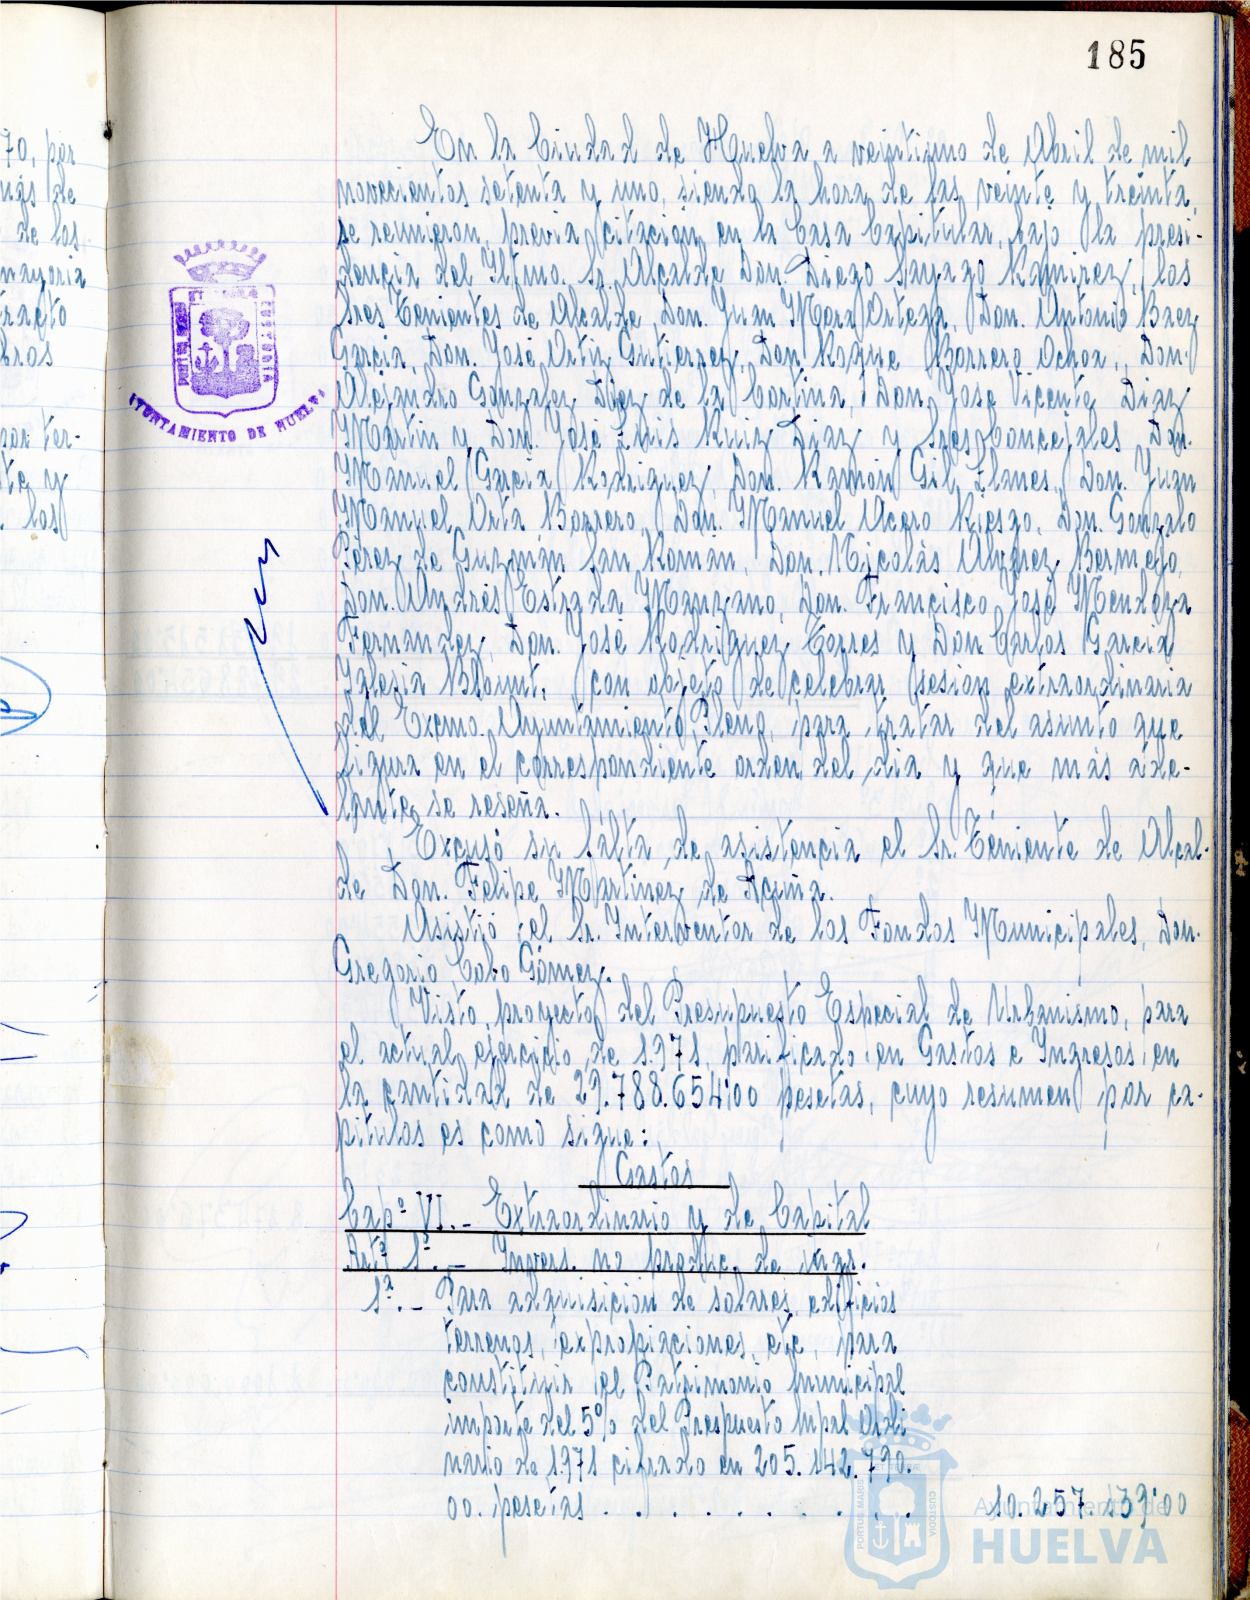 185
70, por
más de
de los
mayoria
racto
bros
por ter-
te y
. los
En la Ciudad de Huelva a veintiuno de Abril de mil
novecientos setenta y uno, siendo la hora de las veinte y treinta,
se reunieron, previa citación, en la Casa Capitular, bajo la presi-
dencia del Iltmo. Sr. Alcalde Don. Diego Sayago Ramirez, los
Sres Tenientes de Alcalde, Don. Juan Mora Ortega, Don. Antonio Baez
Garcia, Don. José Ortiz Gutierrez, Don. Roque Barrero Ochoa, Don.
Alejandro Gonzalez Diez de la Cortina, Don. José Vicente Diaz
Martin y Don. José Luis Ruiz Diaz y Sres. Concejales Don.
Manuel Garcia Rodriguez, Don. Ramón Gil Llanes, Don. Juan
Manuel Orta Borrero, Don. Manuel Acero Riesgo, Don. Gonzalo
Pérez de Guzmán San Román, Don. Nicolás Alvarez Bermejo,
Don. Andrés Estrada Manzano, Don. Francisco José Mendoza
Fernandez, Don. José Rodriguez Torres y Don Carlos Garcia
Ysleria Blount, con objeto de celebrar sesión extraordinaria
del Excmo. Ayuntamiento Pleno, para tratar del asunto que
figura en el correspondiente orden del dia y que más ade-
lante se reseña.
Excusó su falta de asistencia el Sr. Teniente de Alcal-
de Don. Felipe Martinez de Acuña.
Asistió el Sr. Interventor de los Fondos Municipales, Don.
Gregorio Cabo Gómez.
Visto proyecto del Presupuesto Especial de Urbanismo, para
el actual ejercicio de 1.971, parificado en Gastos e Ingresos en
la cantidad de 29.788.654'00 pesetas, cuyo resumen por ca-
pitulos es como sigue:
Gastos
Capº VI.- Extraordinario y de Capital
Artº 1º.- Invers. no produc. de ingr.
1ª.- Para adquisición de solares, edificios
terrenos, expropiaciones, etc, para
constituir el Patrimonio Municipal
importe del 5% del Presupuesto Mpal Ordi
nario de 1.971 cifrado en 205.142.790.
00. pesetas . . . . . . . . . 10.257.139'00
AYUNTAMIENTO DE HUELVA
PORTUS MARIS
CUSTODIA
Ayuntamiento de
HUELVA